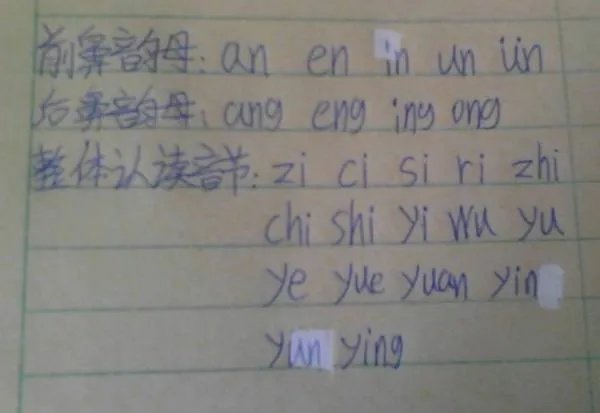 前鼻韵母: an en in un ün
后鼻韵母: ang eng ing ong
整体认读音节: zi ci si ri zhi
chi shi yi wu yu
ye yue yuan yin
yun ying